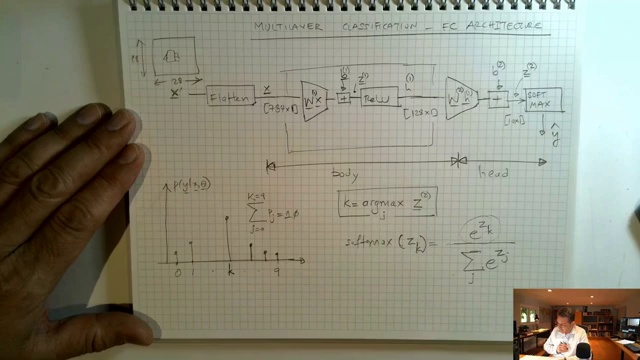 MULTILAYER CLASSIFICATION - FC ARCHITECTURE
28
28
x'
Flatten
x
[787x1]
W⁽¹⁾x
b⁽¹⁾
+
z⁽¹⁾
ReLU
h⁽¹⁾
[128x1]
W⁽²⁾h
b⁽²⁾
+
z⁽²⁾
[10x1]
SOFT MAX
ŷ
body
head
p(y|x,θ)
K=9
∑ p̂j = 1.0
j=0
0 1 . k 9
k = argmax z⁽²⁾
j
softmax (zk) = e^zk / ∑j e^zj